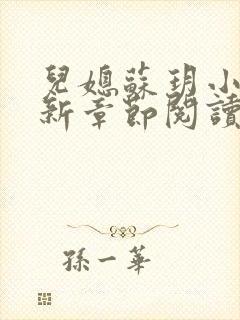 兒媳蘇玥小
新章節閱讀
孫一華